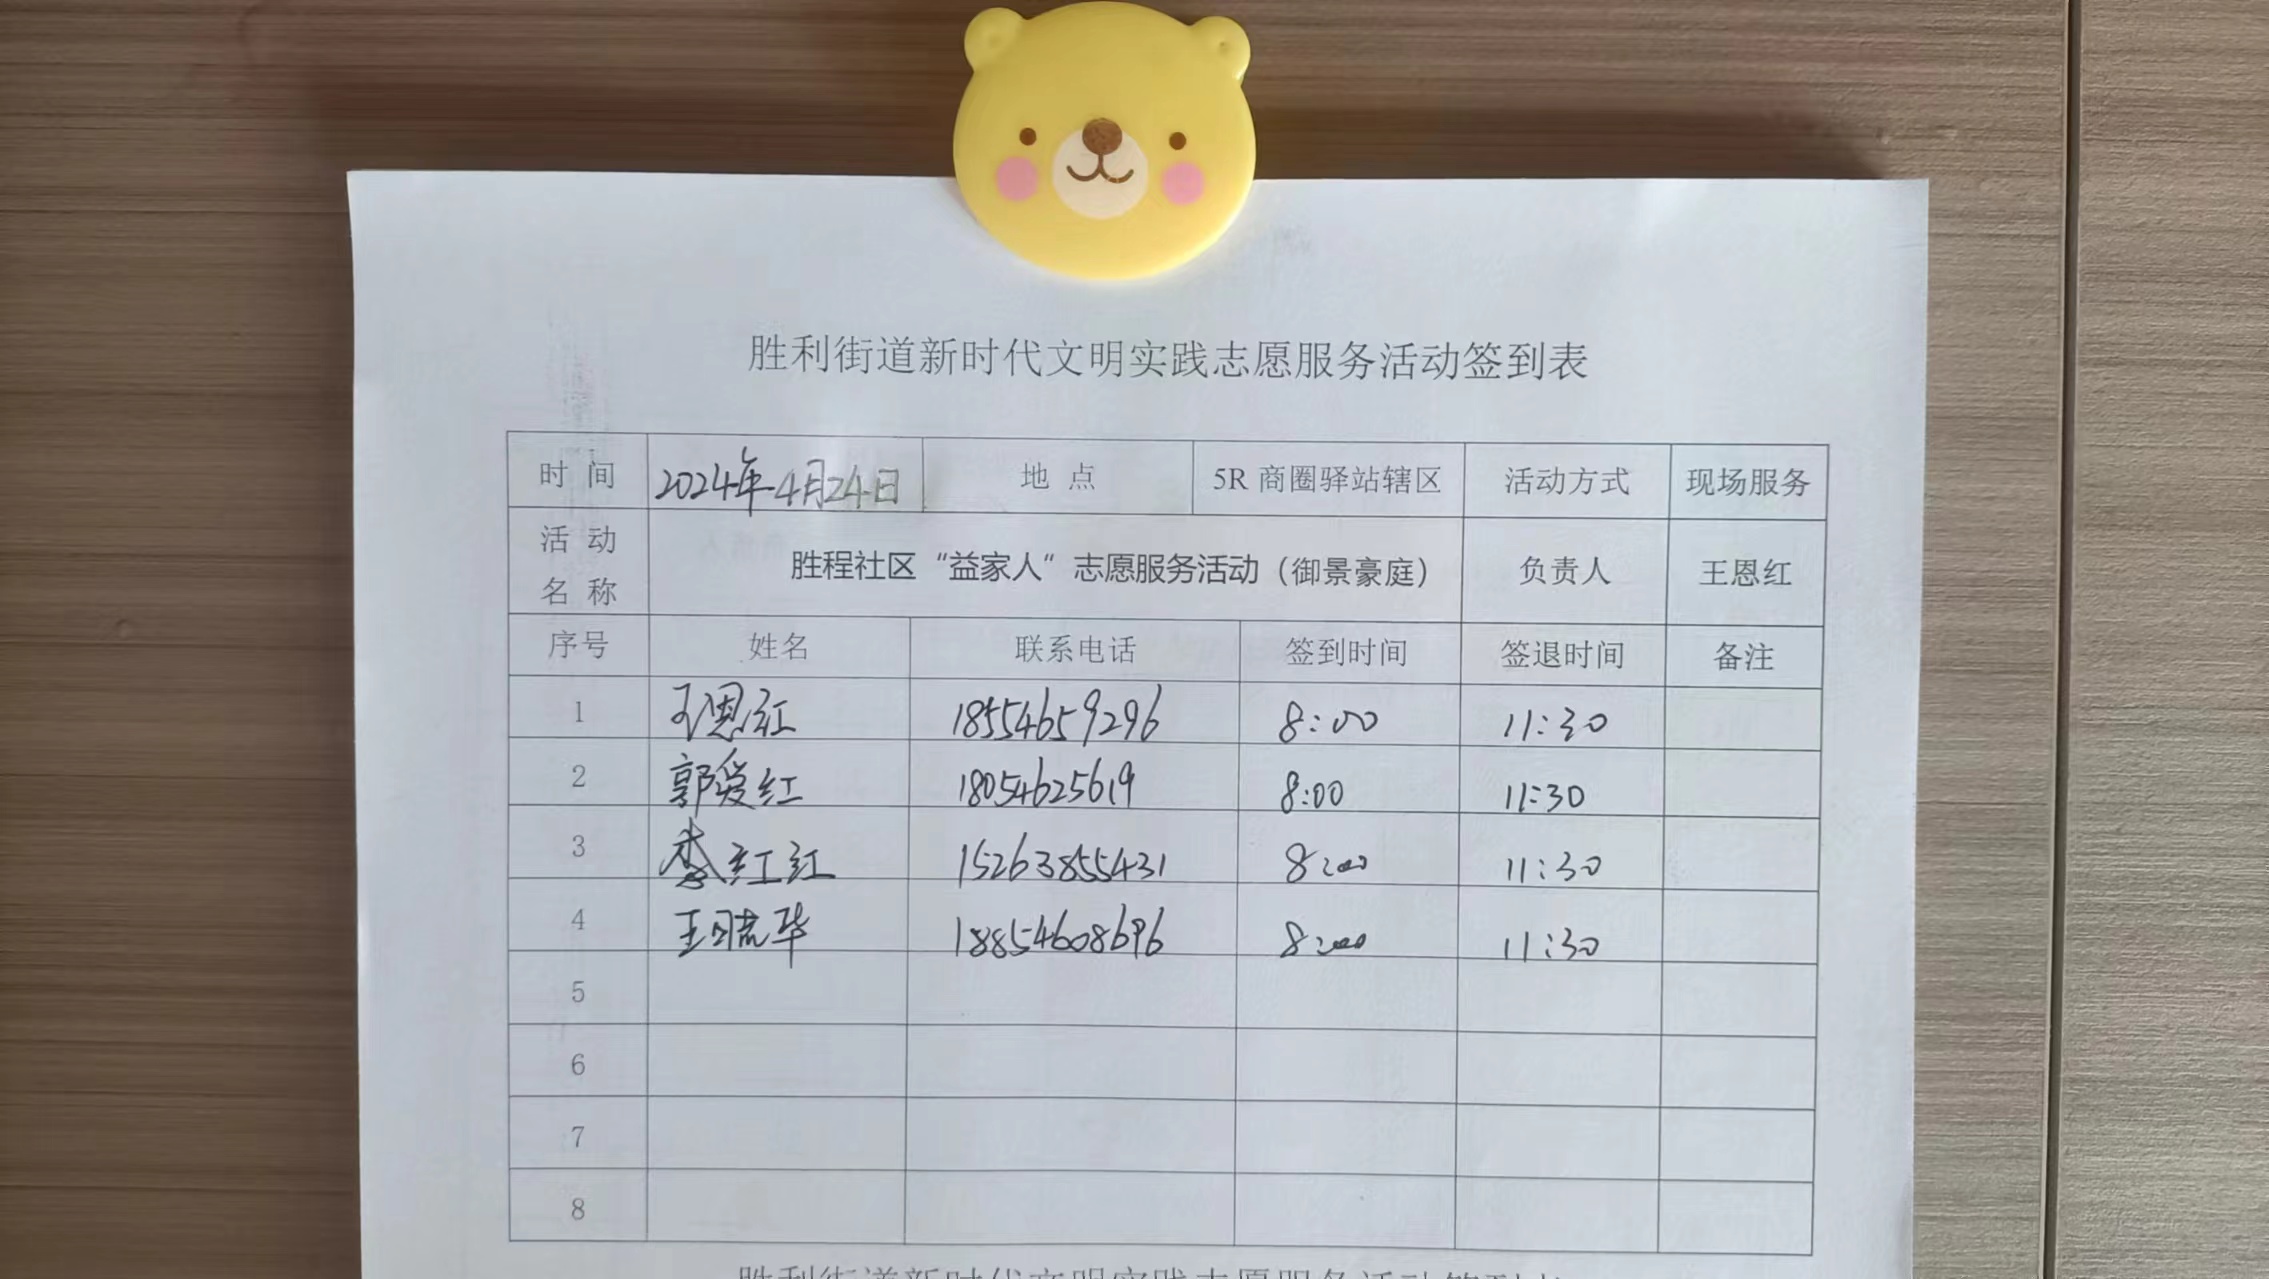 胜利街道新时代文明实践志愿服务活动签到表
时 间 2024年4月24日 地 点 5R 商圈驿站辖区 活动方式 现场服务
活 动
名 称 胜程社区“益家人”志愿服务活动（御景豪庭） 负责人 王恩红
序号 姓名 联系电话 签到时间 签退时间 备注
1 王恩红 18554659296 8:00 11:30
2 郭爱红 18054625619 8:00 11:30
3 李红红 15263855431 8:00 11:30
4 王晓华 18854608696 8:00 11:30
5
6
7
8
胜利街道新时代文明实践志愿服务活动签到表